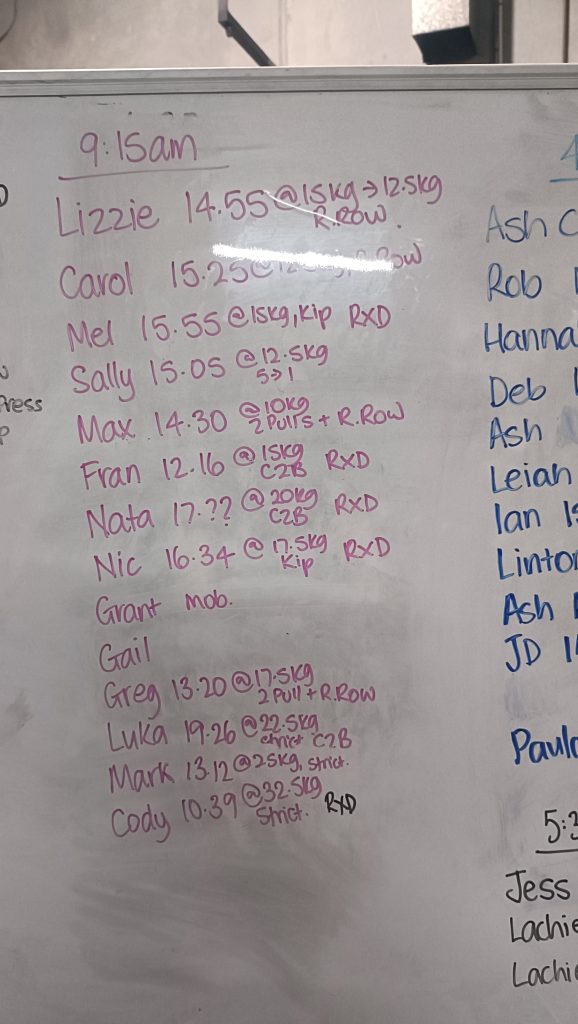 9:15am
Lizzie 14.55 @ 15kg → 12.5kg
R.ROW.
Carol 15.25
Mel 15.55 @ 15kg, Kip RXD
Sally 15.05 @ 12.5kg
5→1
Max 14.30 @ 10kg
2 Pulls + R.Row
Fran 12.16 @ 15kg RXD
C2B
Nata 17.?? @ 20kg RXD
C2B
Nic 16.34 @ 17.5kg RXD
Kip
Grant mob.
Gail
Greg 13.20 @ 17.5kg
2 Pull + R.Row
Luka 19.26 @ 22.5kg
strict C2B
Mark 13.12 @ 25kg, strict.
Cody 10.39 @ 32.5kg
Strict. RXD
ress
4
Ash C
Rob
Hanna
Deb
Ash
Leiah
Ian
Linton
Ash
JD
Paul
5:3
Jess
Lachie
Lachie